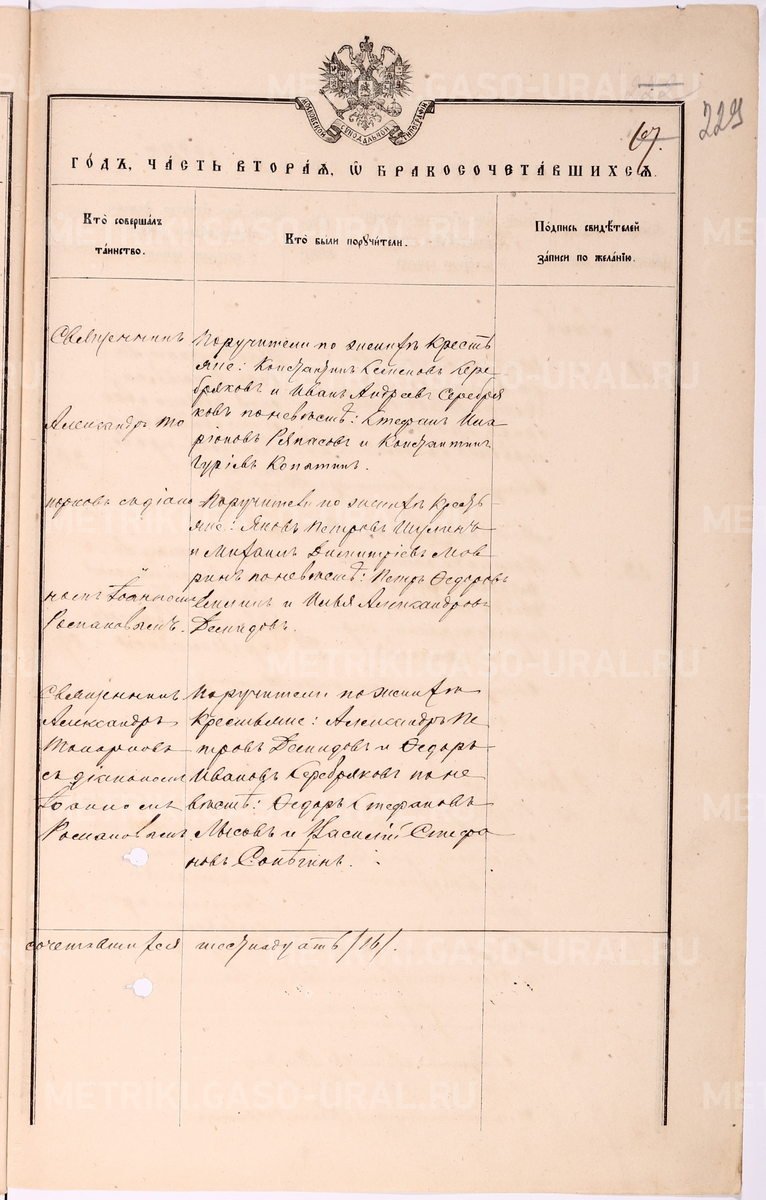 МОСКОВСКОЙ СѴНОДАЛЬНОЙ ТИПОГРАФІИ
229
67.
ГОДЪ, ЧАСТЬ ВТОРАѦ, Ѡ БРАКОСОЧЕТАВШИХСѦ.
Кто совершалъ таинство.
Кто были поручители.
Подпись свидѣтелей записи по желанію.
Священникъ
Александръ То
порковъ съ діако
номъ Іоанномъ
Романовымъ.
Поручители по женихѣ Кресть
яне: Константинъ Семеновъ Сере
бряковъ и Иванъ Андреевъ Серебря
ковъ по невѣстѣ: Стефанъ Ила
ріоновъ Ряпасовъ и Константинъ
Гуріевъ Копатинъ.
Поручители по женихѣ Кресть
яне: Яковъ Петровъ Шулинъ
и Михаилъ Димитріевъ Мов
ринъ по невѣстѣ: Петръ Ѳедоровъ
и Илья Александровъ
Демидовъ.
Священникъ
Александръ
Топорковъ
съ діакономъ
Іоанномъ
Романовымъ.
Поручители по женихѣ
Крестьяне: Александръ Пе
тровъ Демидовъ и Ѳедоръ
Ивановъ Серебряковъ по не
вѣстѣ: Ѳедоръ Стефановъ
Лысовъ и Василій Стефа
новъ Сопѣгинъ.
сочетавшихся шестнадцать /16/.
METRIKI.GASO-URAL.RU